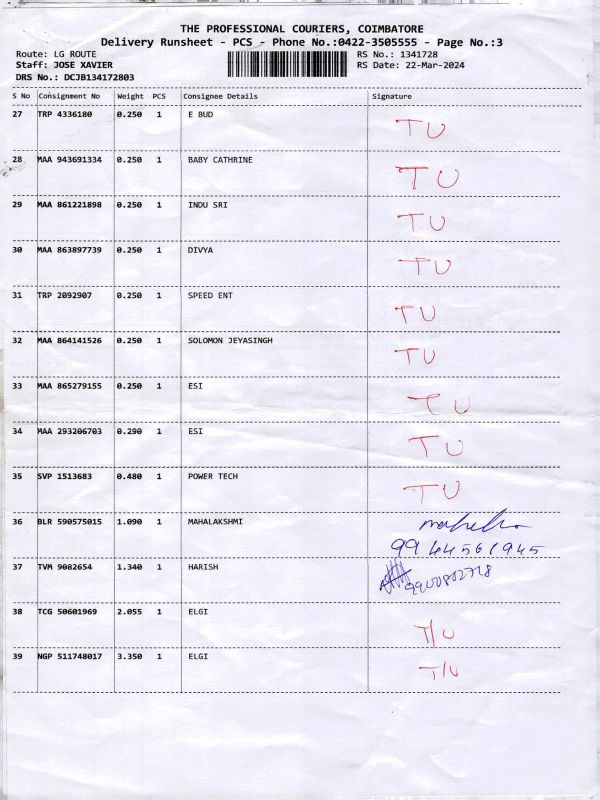 THE PROFESSIONAL COURIERS, COIMBATORE
Delivery Runsheet - PCS - Phone No.:0422-3505555 - Page No.:3
Route: LG ROUTE RS No.: 1341728
Staff: JOSE XAVIER RS Date: 22-Mar-2024
DRS No.: DCJB134172803
S No Consignment No Weight PCS Consignee Details Signature
27 TRP 4336180 0.250 1 E BUD TU
28 MAA 943691334 0.250 1 BABY CATHRINE TU
29 MAA 861221898 0.250 1 INDU SRI TU
30 MAA 863897739 0.250 1 DIVYA TU
31 TRP 2092907 0.250 1 SPEED ENT TU
32 MAA 864141526 0.250 1 SOLOMON JEYASINGH TU
33 MAA 865279155 0.250 1 ESI TU
34 MAA 293206703 0.290 1 ESI TU
35 SVP 1513683 0.480 1 POWER TECH TU
36 BLR 590575015 1.090 1 MAHALAKSHMI
9944561945
37 TVM 9082654 1.340 1 HARISH
38 TCG 50601969 2.055 1 ELGI T/U
39 NGP 511748017 3.350 1 ELGI T/U